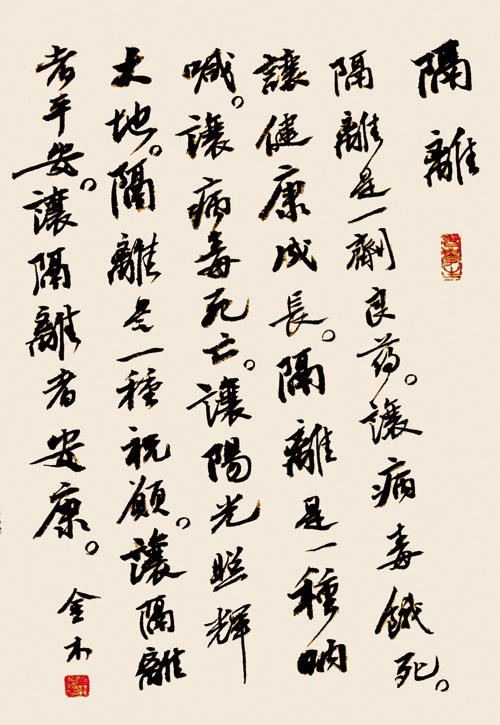 隔離
隔離是一劑良药。讓病毒餓死。
讓健康成長。隔離是一種吶
喊。讓病毒死亡。讓陽光照輝
大地。隔離是一種祝願。讓隔離
者平安。讓隔離者安康。
金木